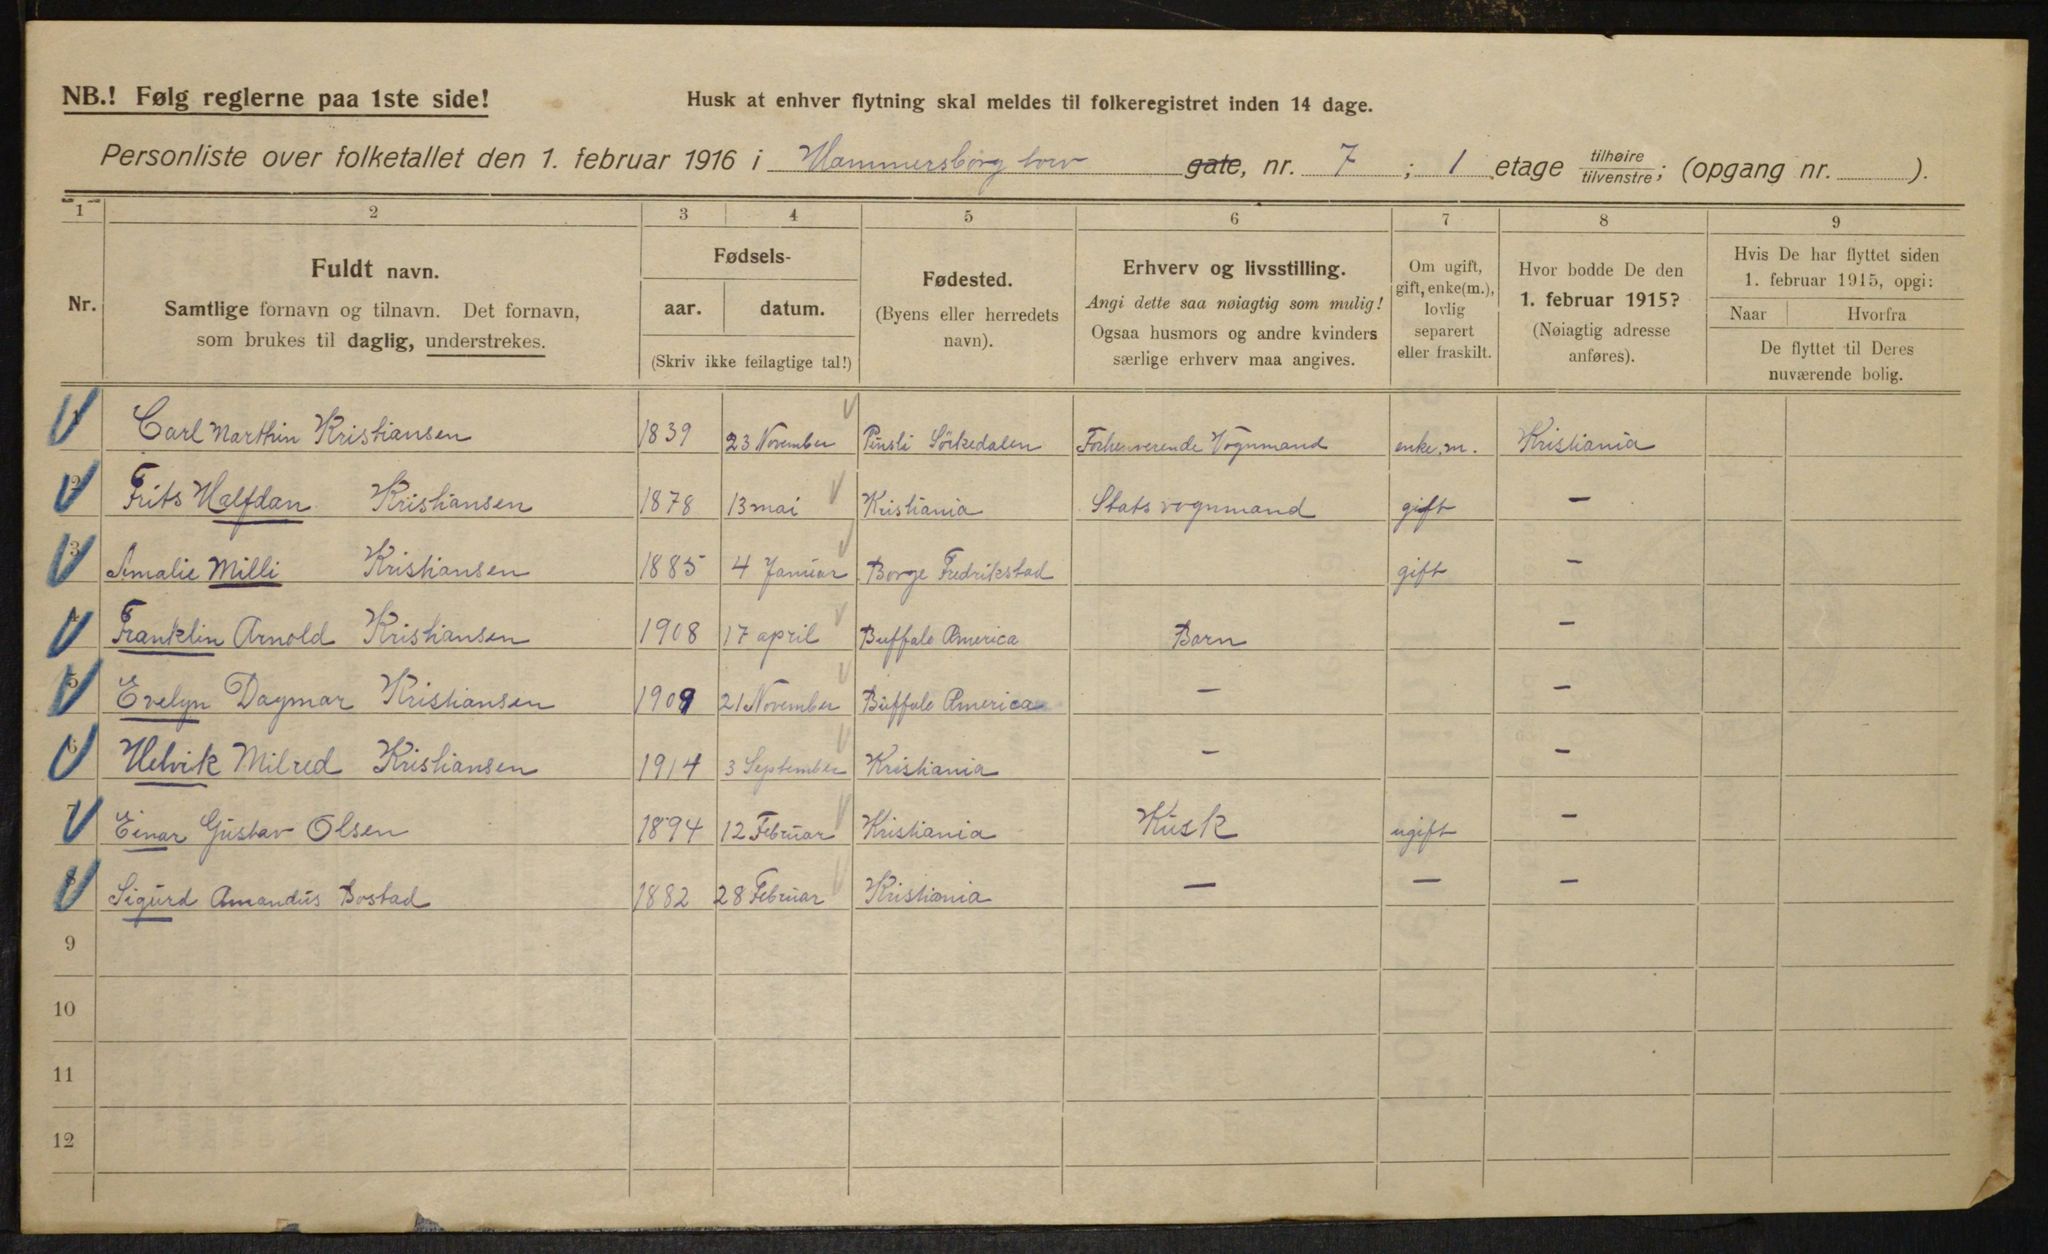 NB.! Følg reglerne paa 1ste side!
Husk at enhver flytning skal meldes til folkeregistret inden 14 dage.
Personliste over folketallet den 1. februar 1916 i Hammersborg torv gate, nr. 7; 1 etage tilhøire tilvenstre; (opgang nr. ).
1 2 3 4 5 6 7 8 9
Nr.
Fuldt navn.
Samtlige fornavn og tilnavn. Det fornavn,
som brukes til daglig, understrekes.
Fødsels-
aar. datum.
(Skriv ikke feilagtige tal!)
Fødested.
(Byens eller herredets
navn).
Erhverv og livsstilling.
Angi dette saa nøiagtig som mulig!
Ogsaa husmors og andre kvinders
særlige erhverv maa angives.
Om ugift,
gift, enke(m.),
lovlig
separert
eller fraskilt.
Hvor bodde De den
1. februar 1915?
(Nøiagtig adresse
anføres).
Hvis De har flyttet siden
1. februar 1915, opgi:
Naar Hvorfra
De flyttet til Deres
nuværende bolig.
1 Carl Marthin Kristiansen 1839 23 November Sörkedalen Forhenverende Vognmand enke.m. Kristiania
2 Frits Halfdan Kristiansen 1878 13 mai Kristiania Stats vognmand gift —
3 Amalie Milli Kristiansen 1885 4 Januar Borge Fredrikstad gift —
4 Franklin Arnold Kristiansen 1908 17 april Buffalo America Barn —
5 Evelyn Dagmar Kristiansen 1909 21 November Buffalo America — —
6 Helvik Milred Kristiansen 1914 3 September Kristiania — —
7 Einar Gustav Olsen 1894 12 Februar Kristiania Kusk ugift —
8 Sigurd Amandus Bostad 1882 28 Februar Kristiania — — —
9
10
11
12